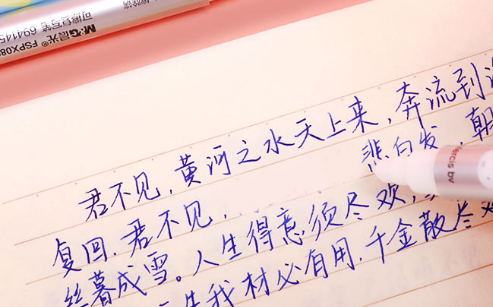 M&G晨光®
FSPX08
694145
君不见,黄河之水天上来,奔流到
复回.君不见, 悲白发,朝
丝暮成雪。人生得意须尽欢,
我材必有用.千金散尽